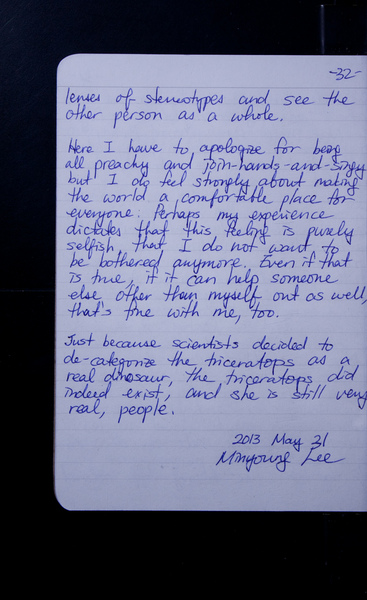 -32-
lenses of stereotypes and see the
other person as a whole.
Here I have to apologize for being
all preachy and join-hands-and-singy
but I do feel strongly about making
the world a comfortable place for
everyone. Perhaps my experience
dictates that this feeling is purely
selfish, that I do not want to
be bothered anymore. Even if that
is true, if it can help someone
else other than myself out as well,
that's fine with me, too.
Just because scientists decided to
de-categorize the triceratops as a
real dinosaur, the triceratops did
indeed exist, and she is still very
real, people.
2013 May 31
Minyoung Lee